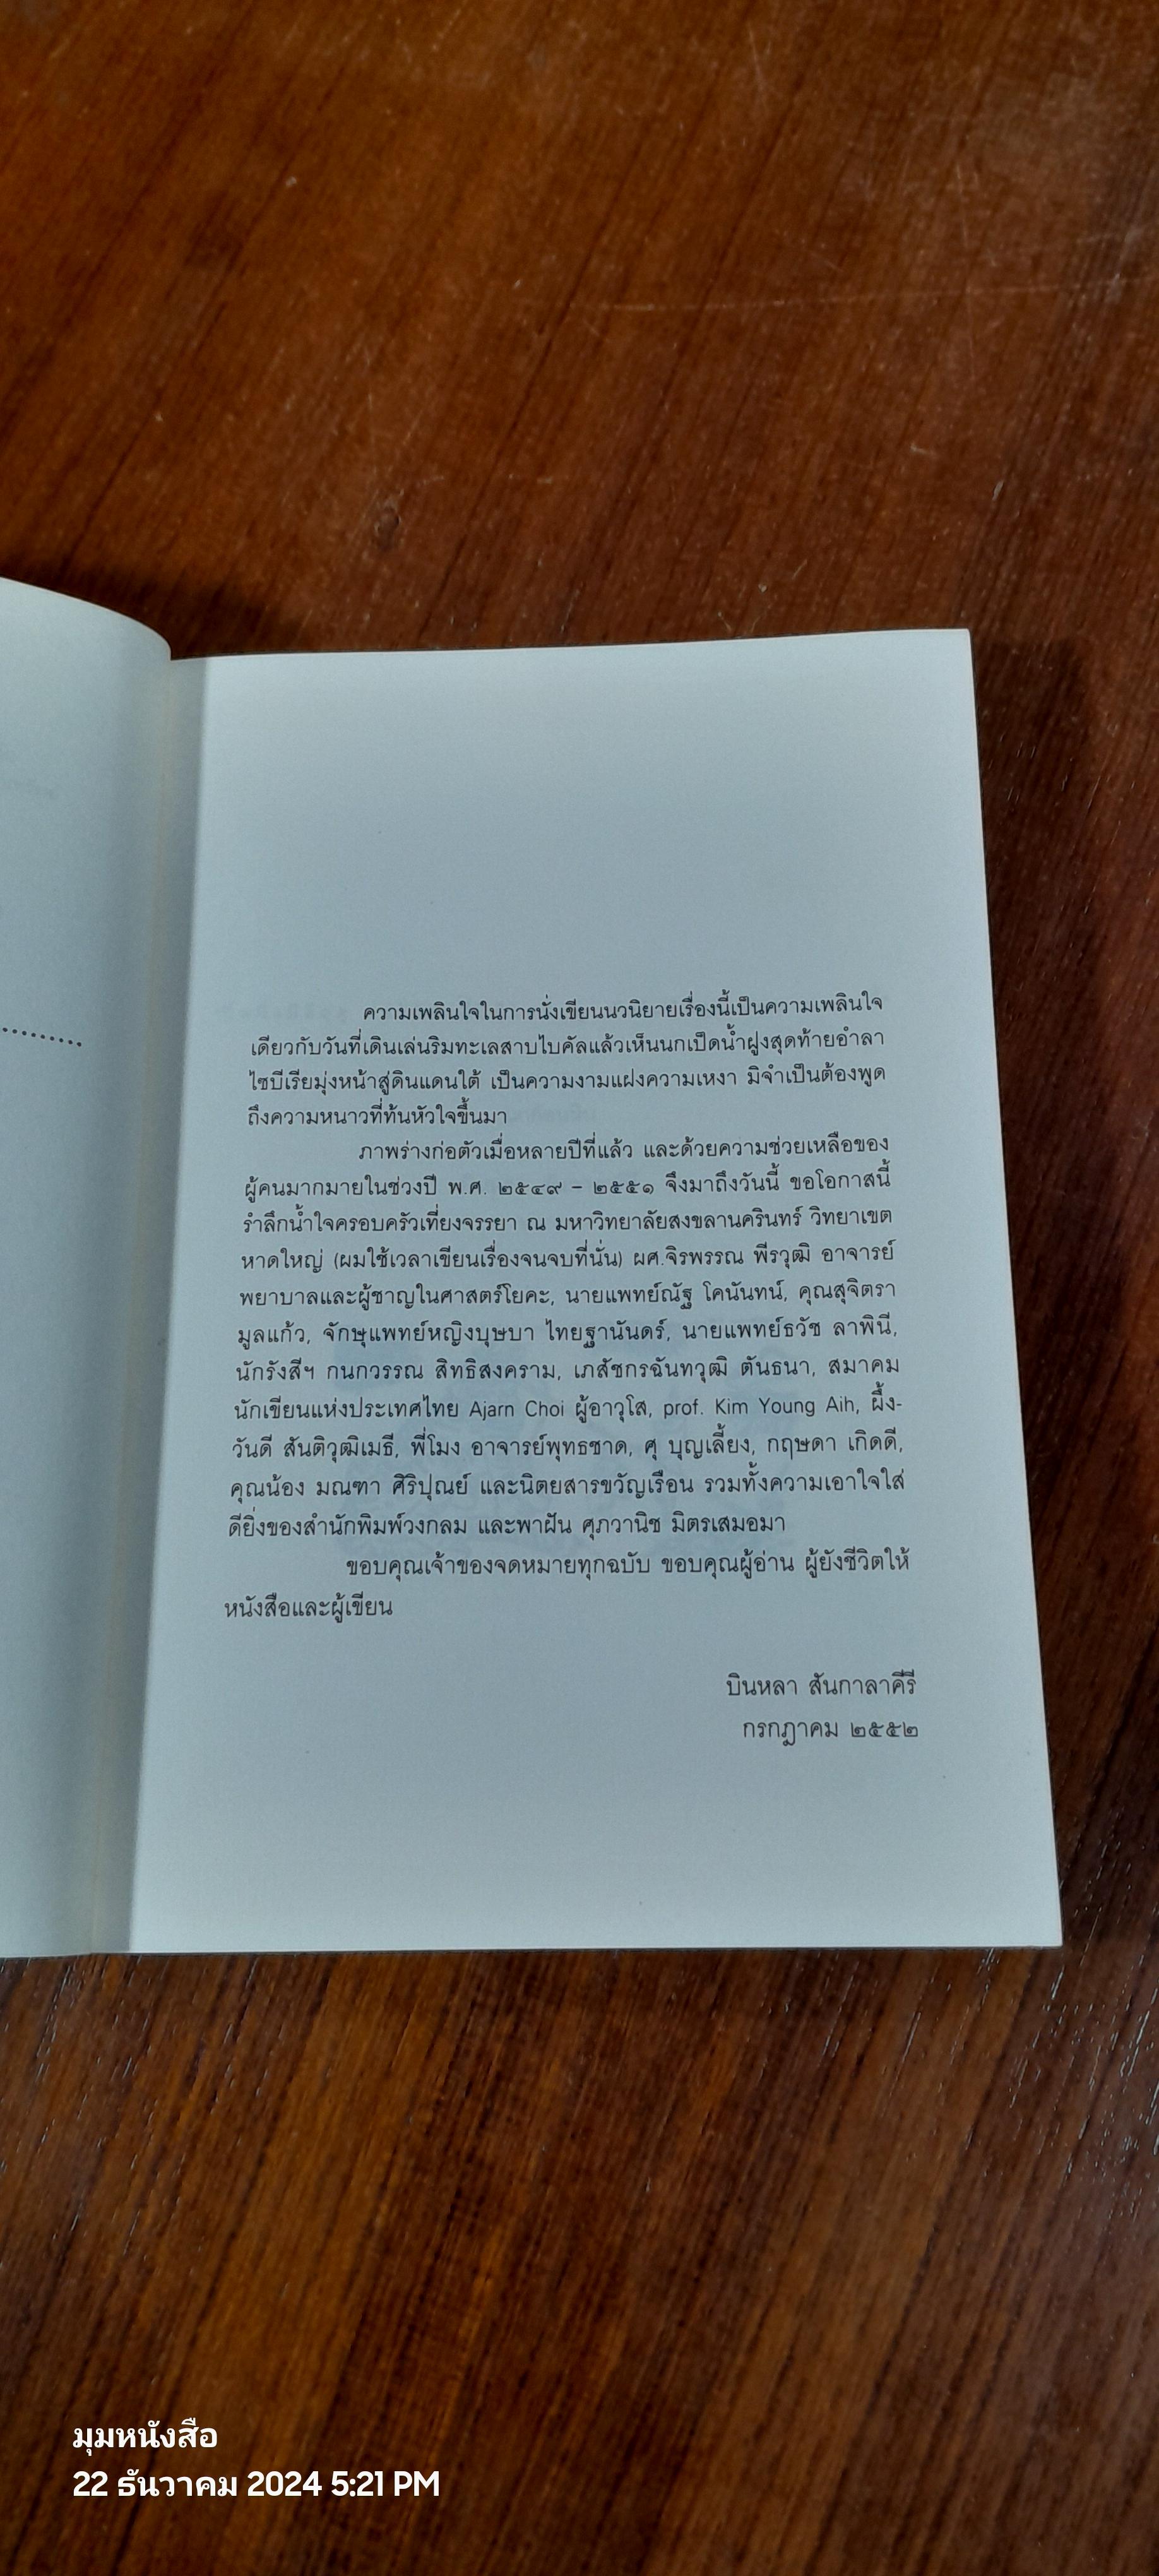 ความเพลินใจในการนั่งเขียนนวนิยายเรื่องนี้เป็นความเพลินใจ
เดียวกับวันที่เดินเล่นริมทะเลสาบไบคัลแล้วเห็นนกเป็ดน้ำฝูงสุดท้ายอำลา
ไซบีเรียมุ่งหน้าสู่ดินแดนใต้ เป็นความงามแฝงความเหงา มิจำเป็นต้องพูด
ถึงความหนาวที่ท้นหัวใจขึ้นมา
ภาพร่างก่อตัวเมื่อหลายปีที่แล้ว และด้วยความช่วยเหลือของ
ผู้คนมากมายในช่วงปี พ.ศ. ๒๕๔๙ – ๒๕๕๑ จึงมาถึงวันนี้ ขอโอกาสนี้
รำลึกน้ำใจครอบครัวเที่ยงจรรยา ณ มหาวิทยาลัยสงขลานครินทร์ วิทยาเขต
หาดใหญ่ (ผมใช้เวลาเขียนเรื่องจนจบที่นั่น) ผศ.จิรพรรณ พีรวุฒิ อาจารย์
พยาบาลและผู้ชาญในศาสตร์โยคะ, นายแพทย์ณัฐ โคนันทน์, คุณสุจิตรา
มูลแก้ว, จักษุแพทย์หญิงบุษบา ไทยฐานันดร์, นายแพทย์ธวัช ลาพินี,
นักรังสีฯ กนกวรรณ สิทธิสงคราม, เภสัชกรฉันทวุฒิ ตันธนา, สมาคม
นักเขียนแห่งประเทศไทย Ajarn Choi ผู้อาวุโส, prof. Kim Young Aih, ผึ้ง-
วันดี สันติวุฒิเมธี, พี่โมง อาจารย์พุทธชาด, ศุ บุญเลี้ยง, กฤษดา เกิดดี,
คุณน้อง มณฑา ศิริปุณย์ และนิตยสารขวัญเรือน รวมทั้งความเอาใจใส่
ดียิ่งของสำนักพิมพ์วงกลม และพาฝัน ศุภวานิช มิตรเสมอมา
ขอบคุณเจ้าของจดหมายทุกฉบับ ขอบคุณผู้อ่าน ผู้ยังชีวิตให้
หนังสือและผู้เขียน
บินหลา สันกาลาคีรี
กรกฎาคม ๒๕๕๒
มุมหนังสือ
22 ธันวาคม 2024 5:21 PM